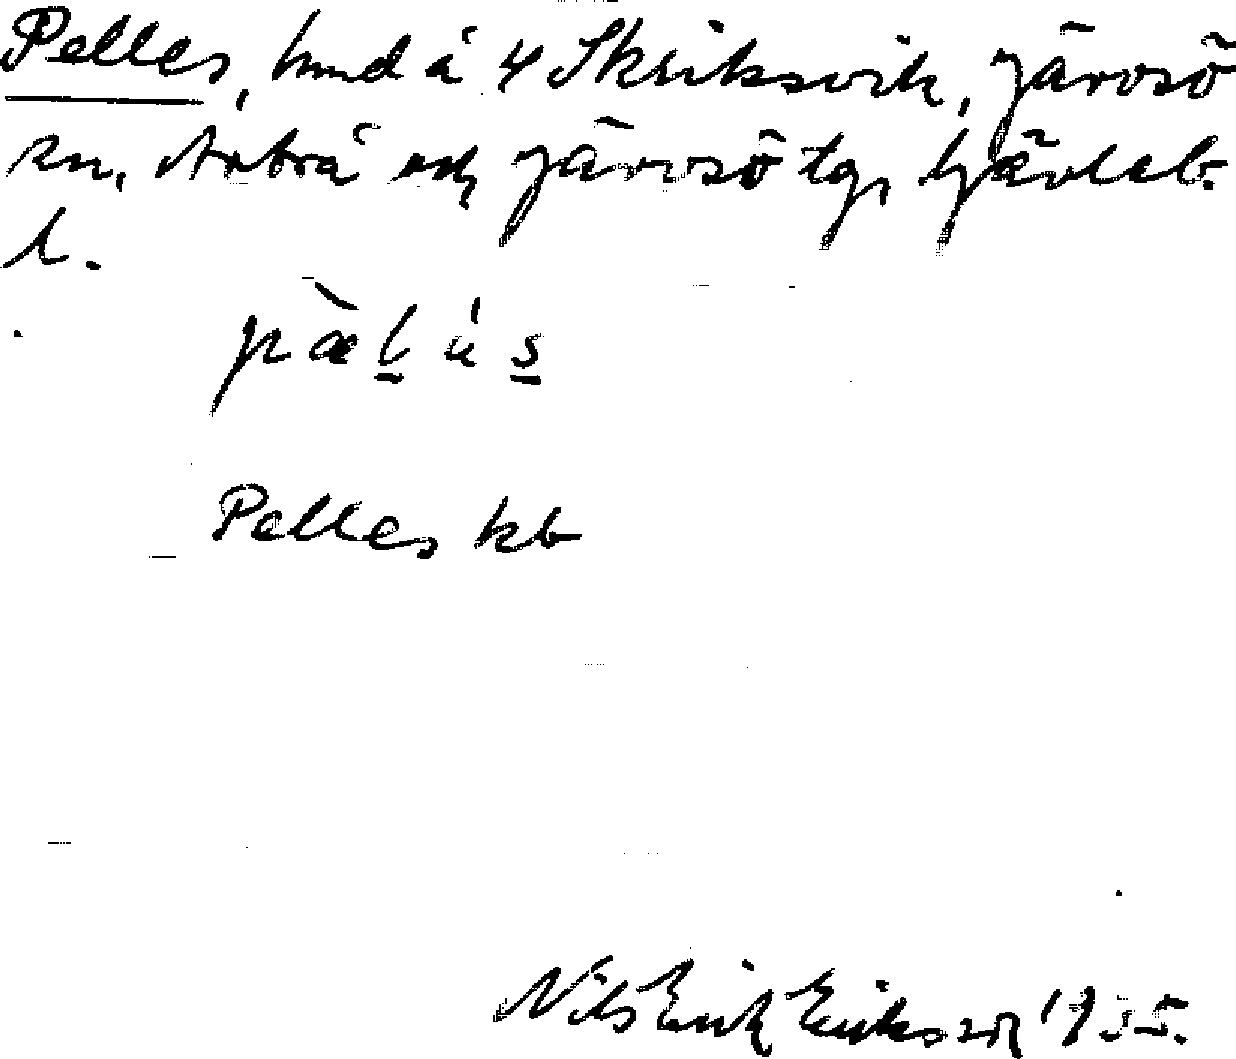 Pelles, hmd å 4 Skriksvik, Järvsö
sn, Arbrå och Järvsö tg, Gävleb.
l.
pæ̀lùs
Pelles kb
Nils Erik Eriksson 1935.